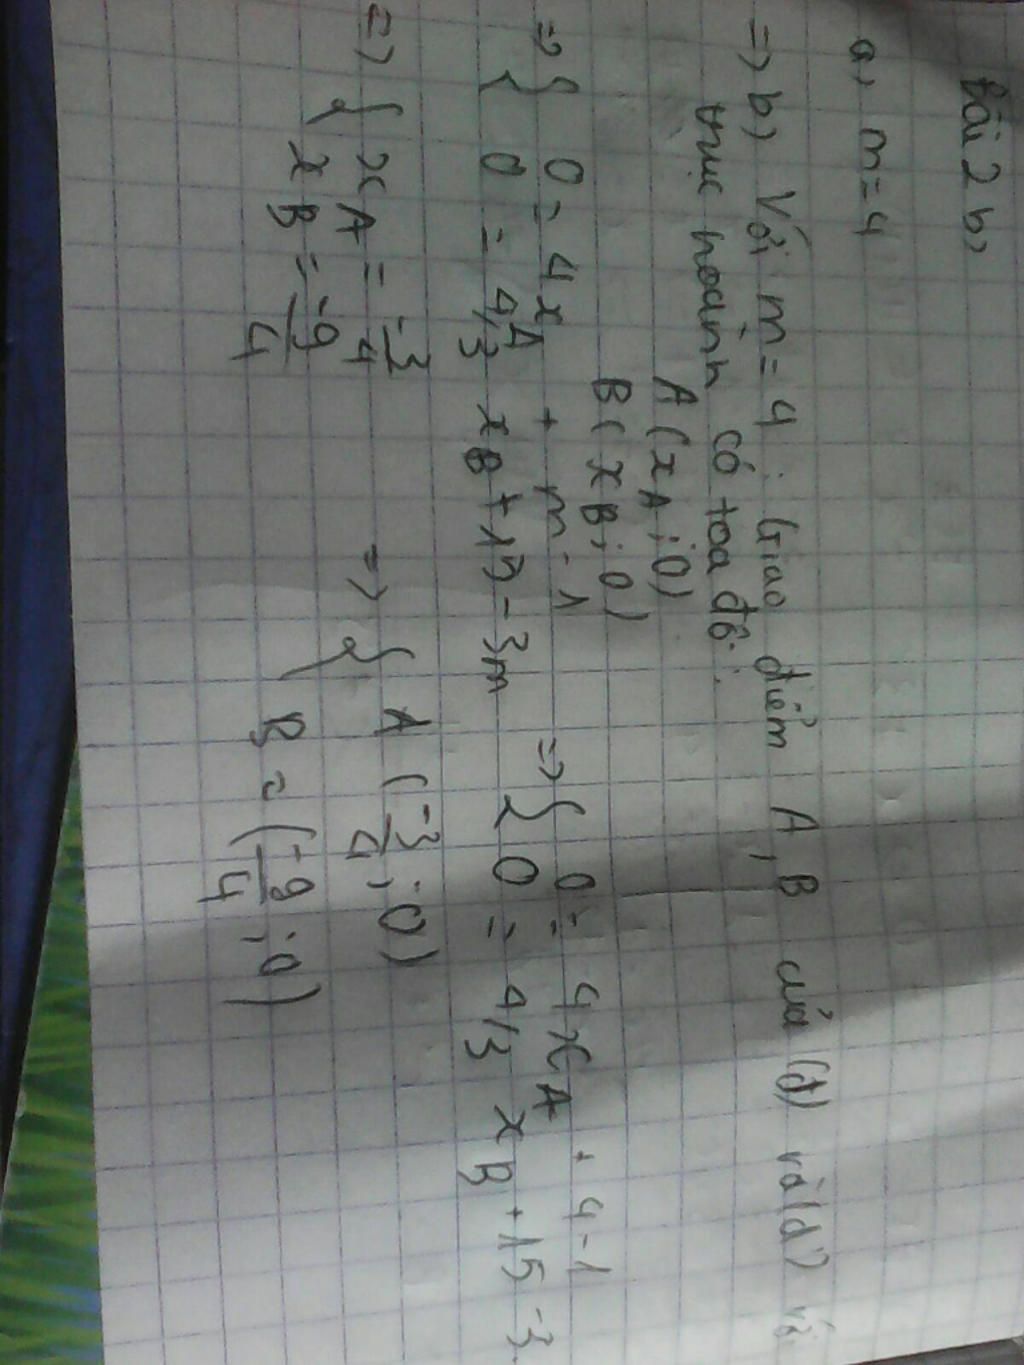 Bài 2 b,
a, m = 4
=> b, Với m = 4 : Giao điểm A, B của (d) và (d') và
trục hoành có toạ độ:
A (xA ; 0)
B ( xB ; 0 )
=> { 0 = 4xA + m - 1 => { 0 = 4xA + 4 - 1
0 = 4/3 xB + 15 - 3m { 0 = 4/3 xB + 15 - 3.
=> { xA = -3/4 => { A ( -3/4 ; 0 )
xB = -9/4 B = ( -9/4 ; 0 )